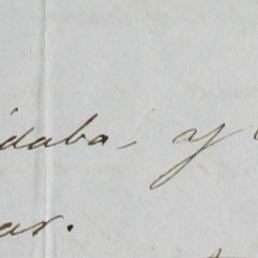 idaba, y
ar.